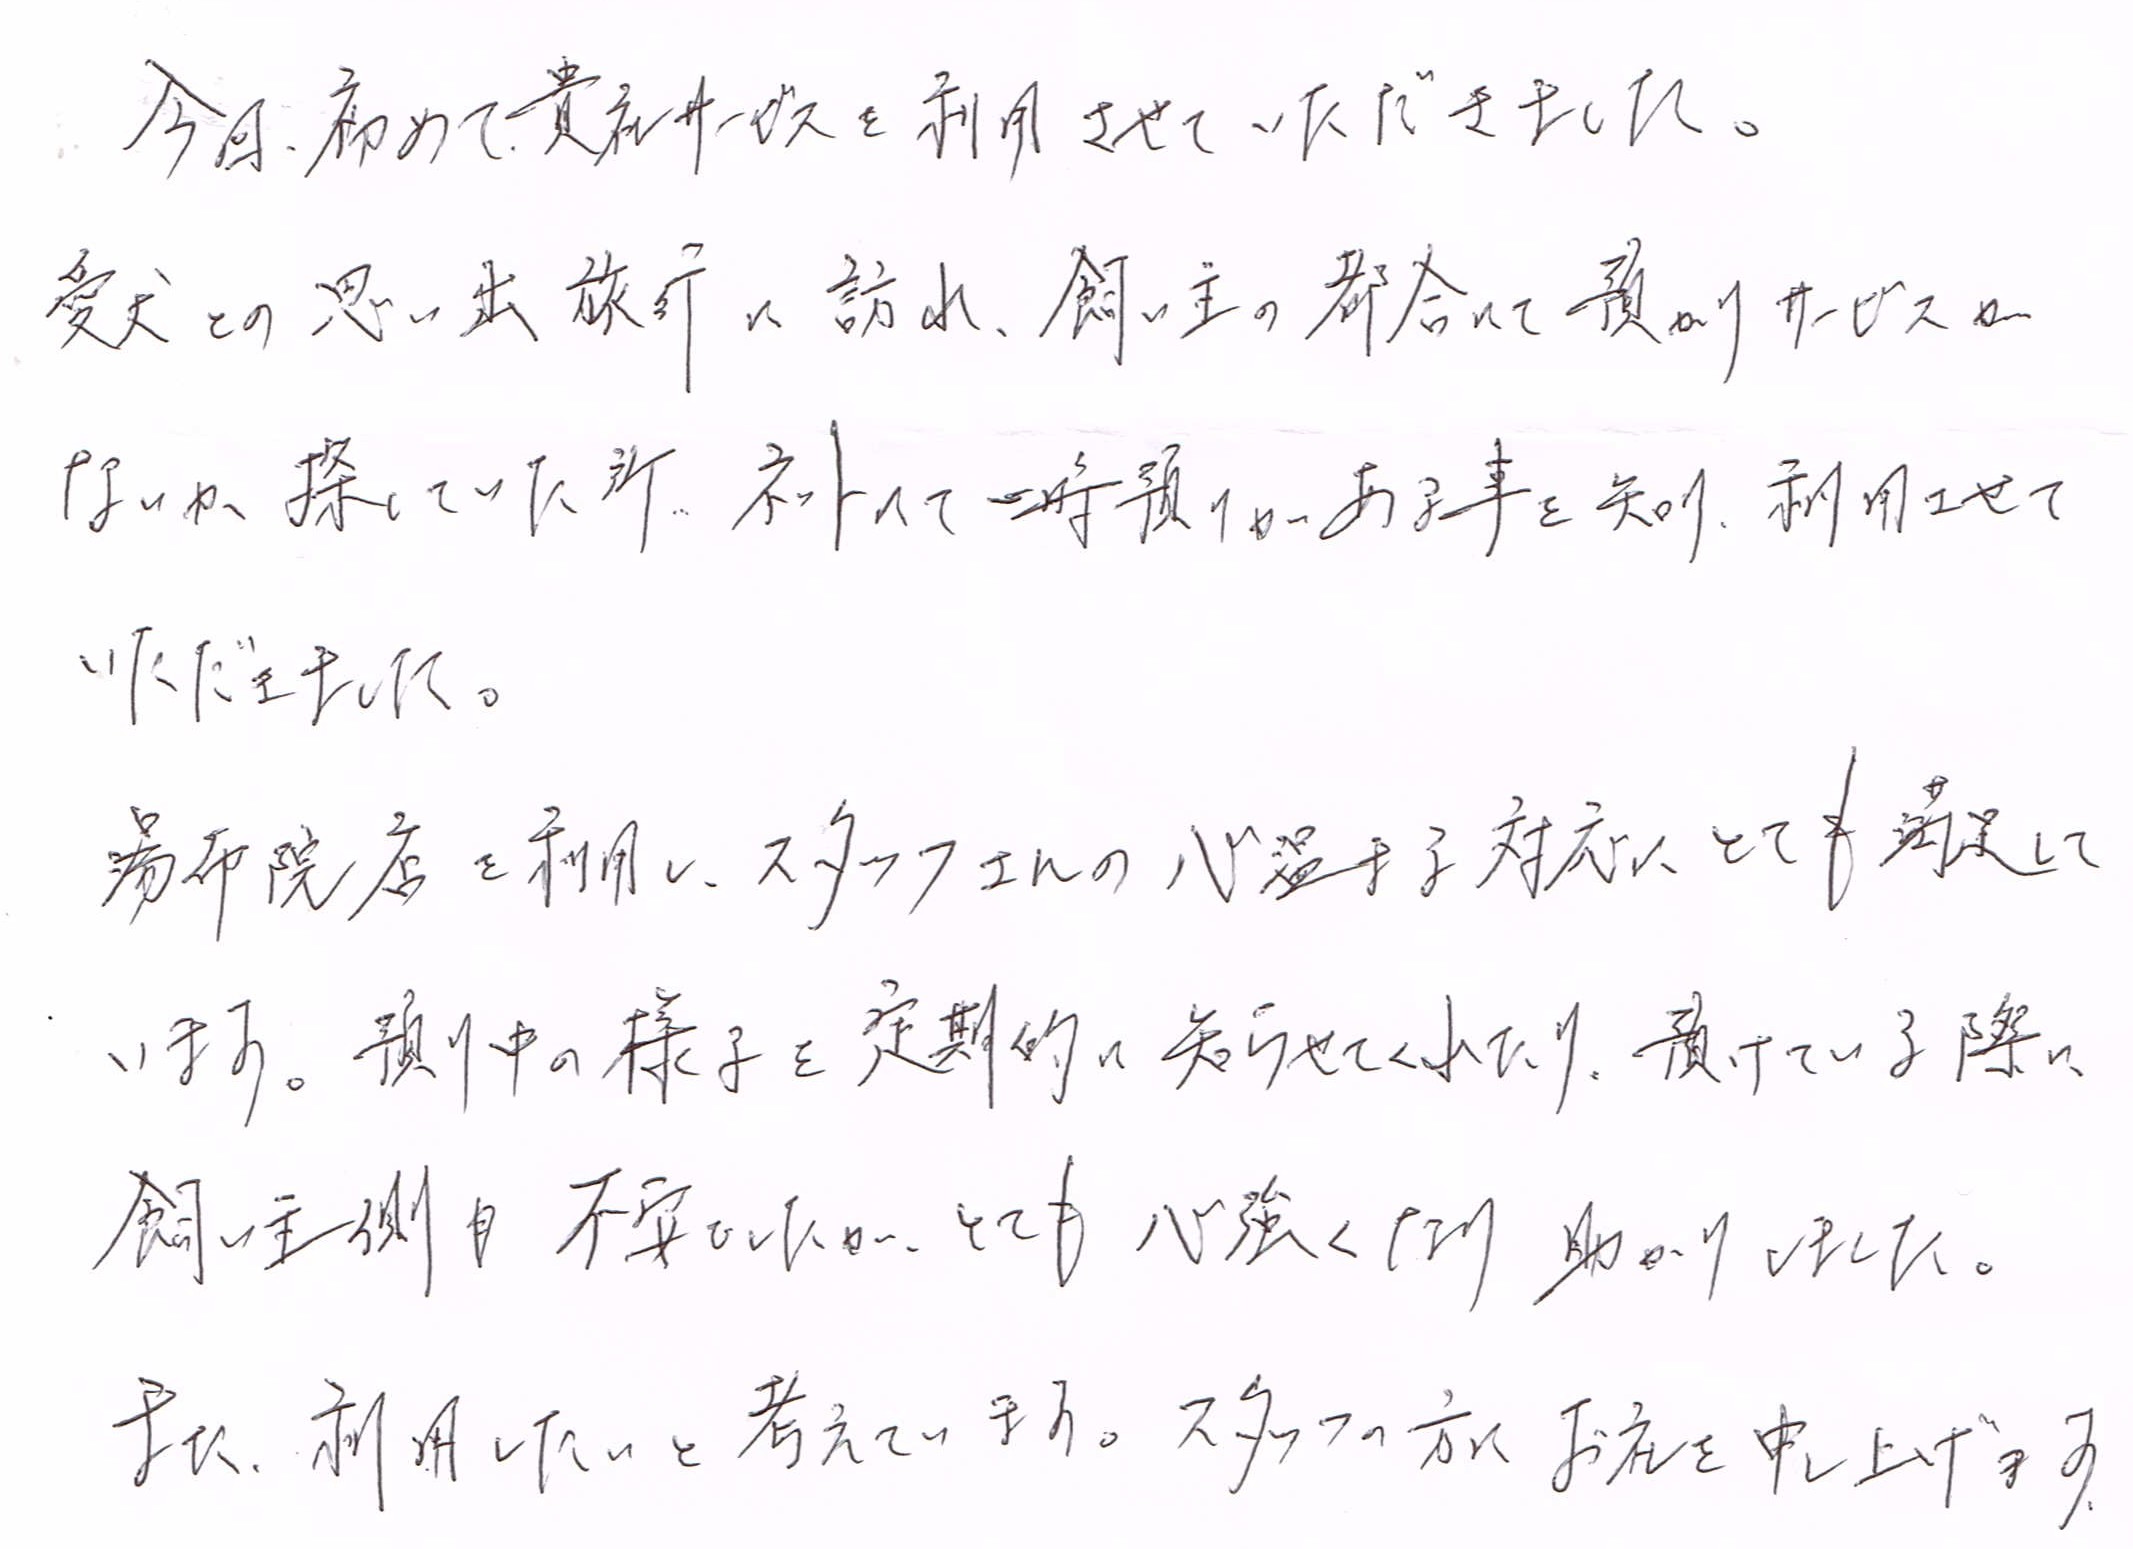 今回、初めて、貴社サービスを利用させていただきました。
愛犬との思い出旅行に訪れ、飼い主の都合にて預かりサービスが
ないか探していた所、ネットにて一時預りがある事を知り、利用させて
いただきました。
湯布院店を利用し、スタッフさんの心温まる対応にとても満足して
います。預り中の様子を定期的に知らせてくれたり、預けている際に
飼い主側も不安でしたが、とても心強くなり助かりました。
また、利用したいと考えています。スタッフの方にお礼を申し上げます。